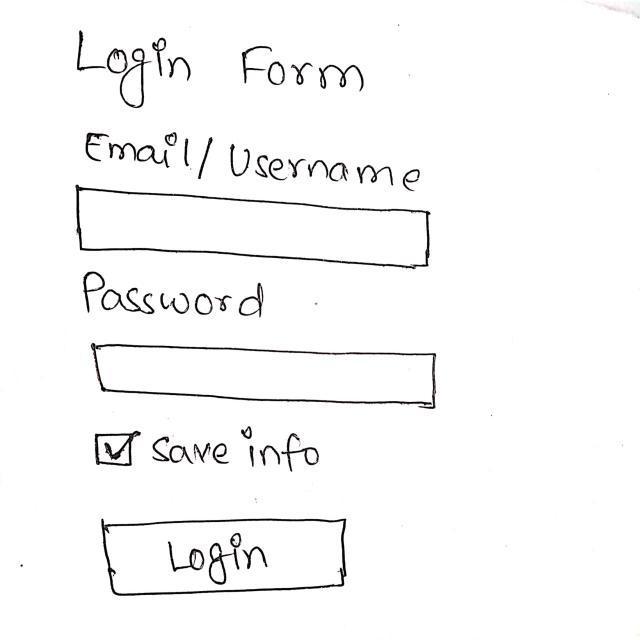 Login Form
Email/Username
Password
Save info
Login